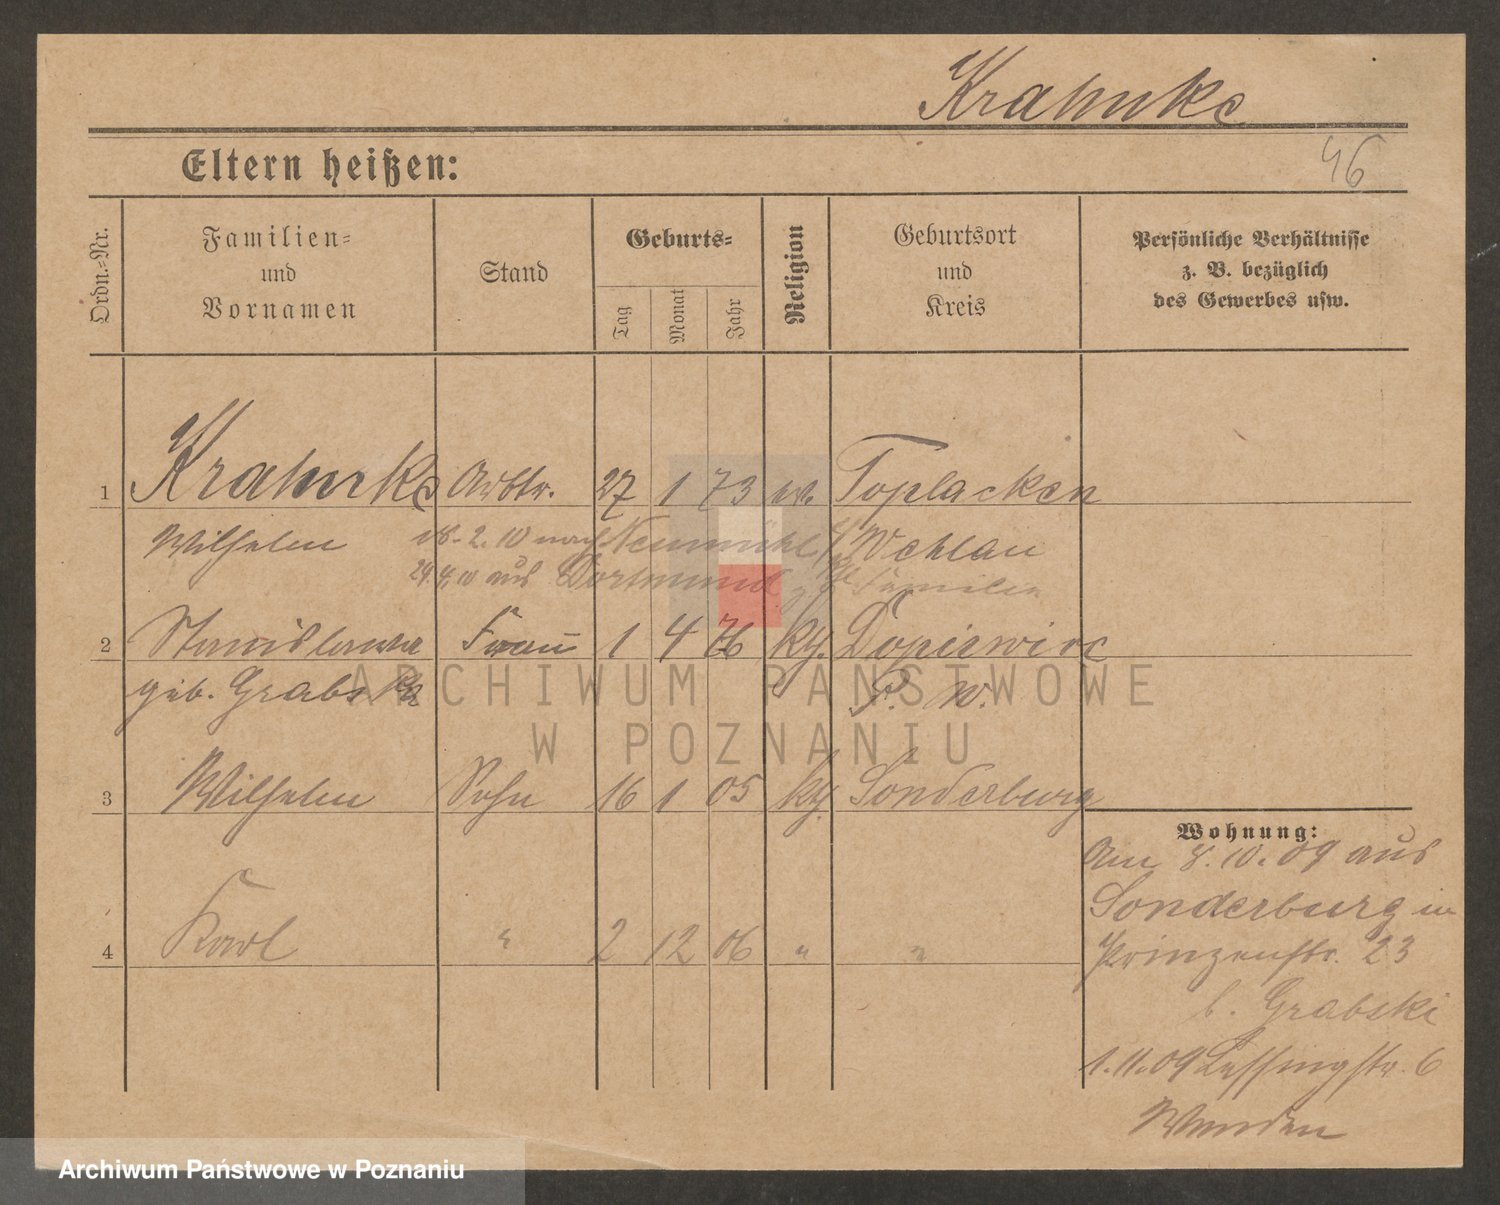 Krahnke
46
Eltern heißen:
Ordn.-Nr.
Familien-
und
Vornamen
Stand
Geburts-
Tag
Monat
Jahr
Religion
Geburtsort
und
Kreis
Persönliche Verhältnisse
z. B. bezüglich
des Gewerbes usw.
1 Krahnke Arbtr. 27 1 73 ev. Toplacken
Wilhelm Wehlau
18.2.10 nach Neumühl
29.4.10 aus Dortmund Familie
2 Stanislawa Frau 1 4 76 kth. Dopiewiec
geb. Grabska P. W.
3 Wilhelm Sohn 16 1 05 kth. Sonderburg
4 Karl " 2 12 06 " "
Wohnung:
Am 8.10.09 aus
Sonderburg in
Prinzenstr. 23
b. Grabski
1.11.09 Lessingstr. 6
ARCHIWUM PAŃSTWOWE
W POZNANIU
Archiwum Państwowe w Poznaniu